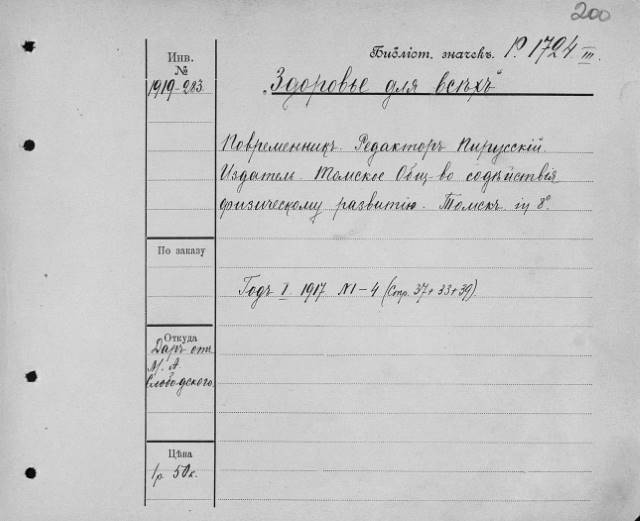 200
Библіот. значекъ. Р. 1724 III.
Инв.
№
1919-283.
„Здоровье для всѣхъ"
Повременникъ. Редакторъ Пирусскій.
Издатель Томское Общ-во содѣйствія
физическому развитію. Томскъ. in 8°.
По заказу
Годъ I. 1917 №1-4 (Стр. 37+33+39).
Откуда
Даръ отъ
А.
Слободского.
Цѣна
1р 50к.